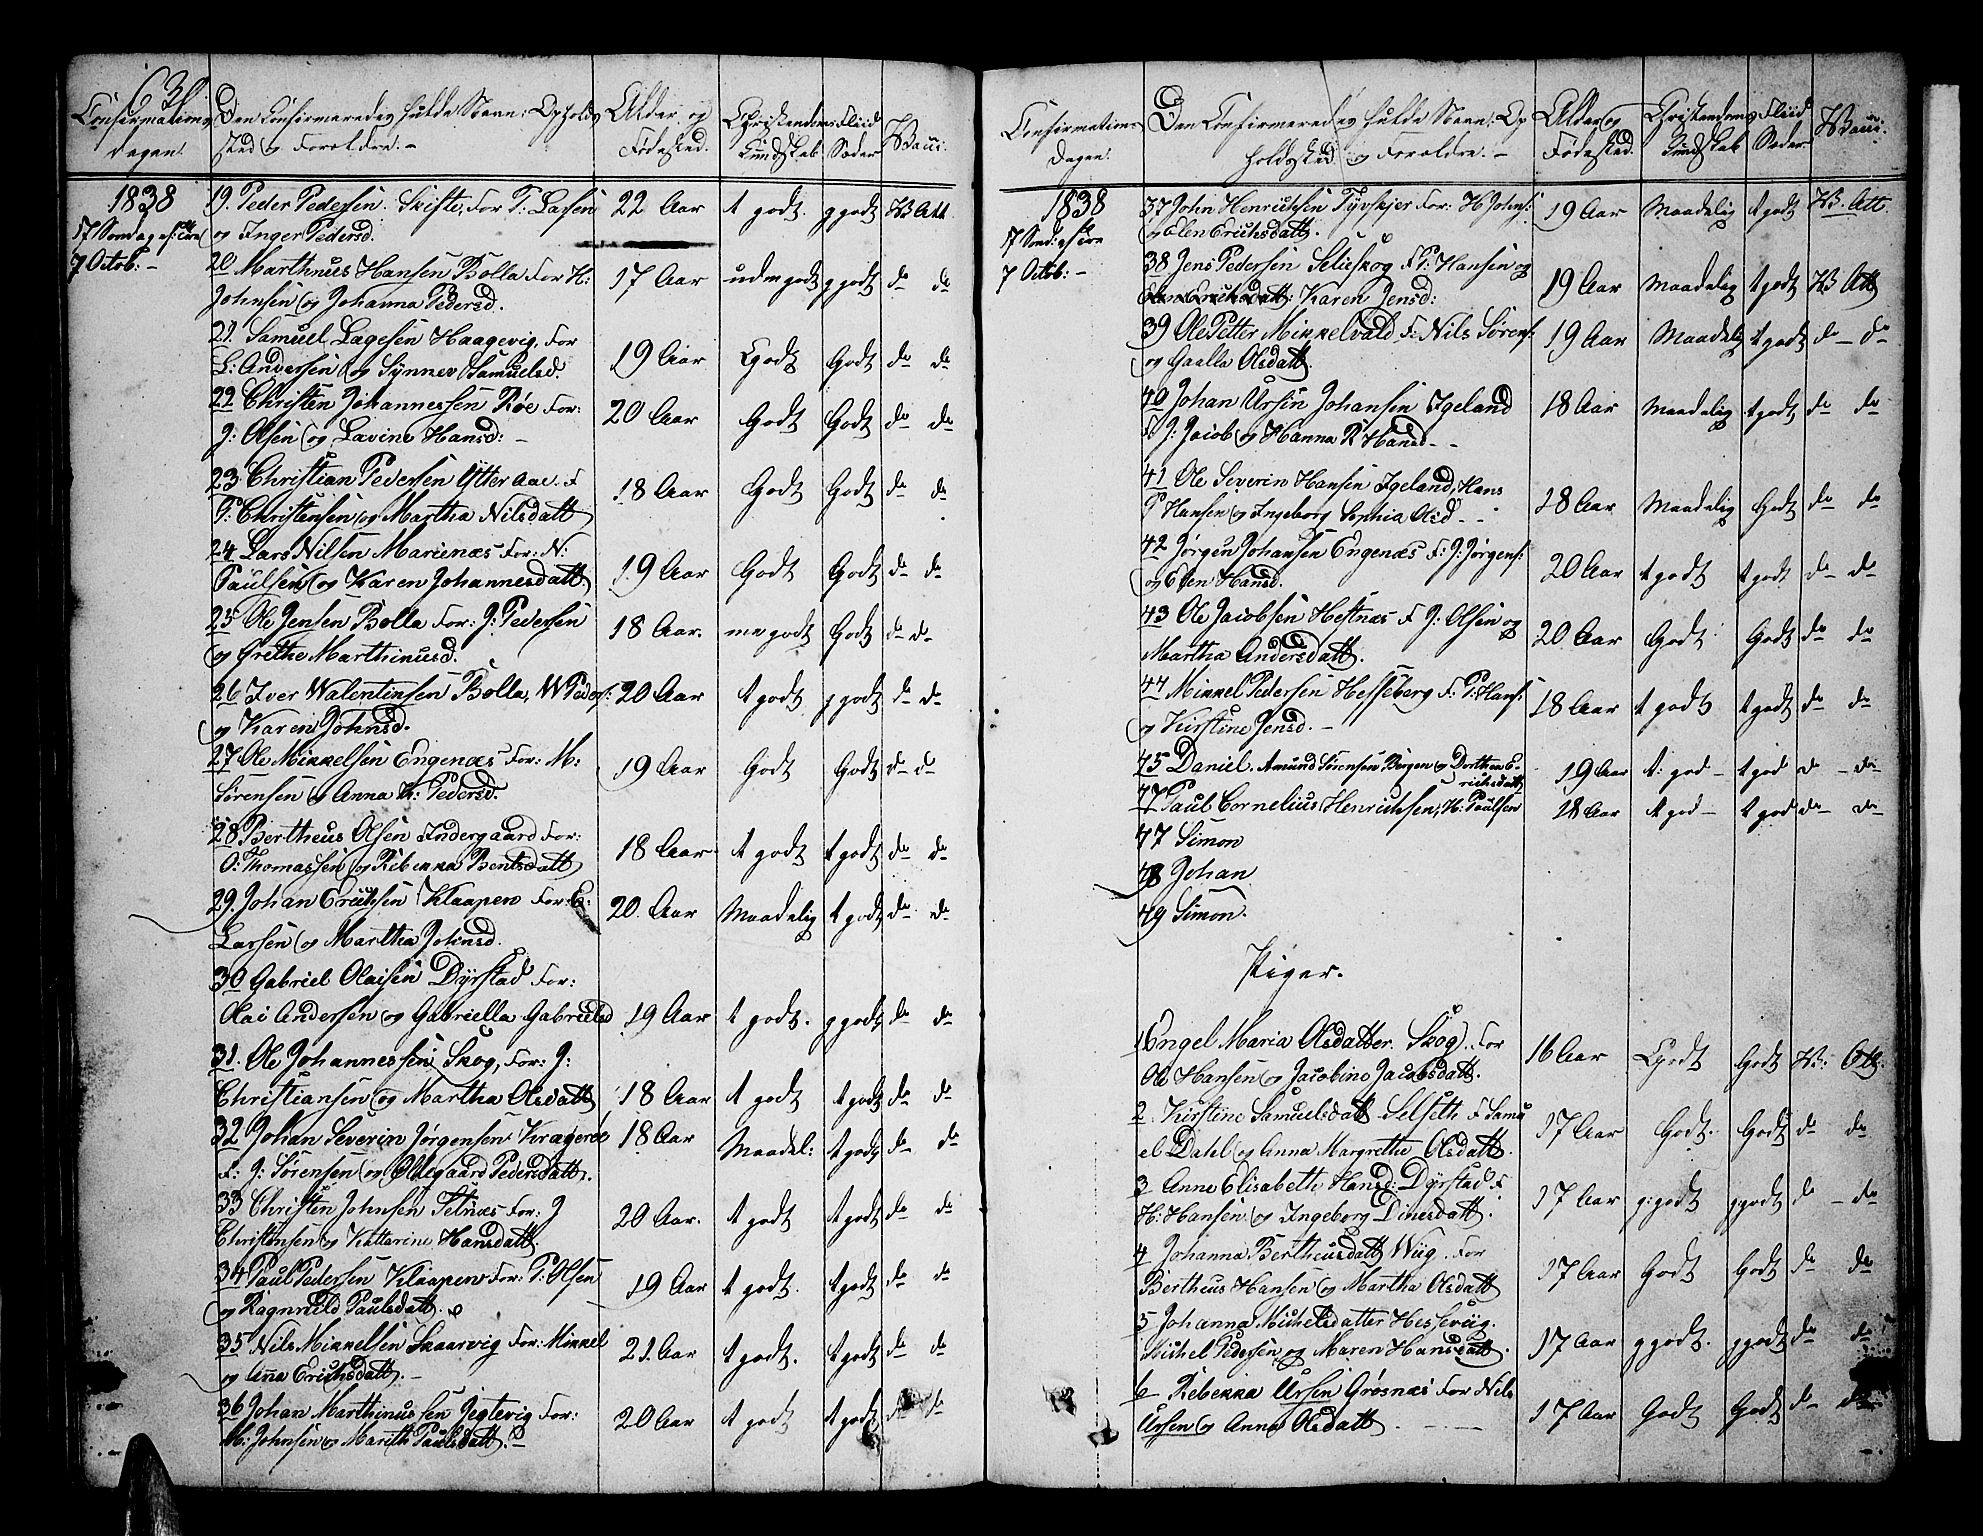 63
Confirmations Den Confirmeredes fulde Navn: Opholds Alder og Christendoms Flid Vacci:
dagen: sted og Foreldre. - Fødested. Kundskab Sæder
1838 19. Peder Pedersen. Skifte, For P: Larsen 22 Aar t godt. g godt V Att
17 Søndag ef: tre og Inger Pedersd.
7 Octob: - 20 Marthnus Hansen Bolla For H: 17 Aar udm godt g godt do do
Johnsen og Johanna Pedersd.
21. Samuel Lagesen Haagevig. For
L: Andersen og Synnev Samuelsd. 19 Aar Godt do do
22 Christen Johannessen Røe For: 20 Aar Godt Godt do do
J: Olsen og Lavine Hansd: -
23 Christian Pedersen Ytter Aae. F 18 Aar Godt Godt do do
P: Christensen og Martha Nilsdatt
24 Lars Nilsen Marienæs For: N: 19 Aar Godt Godt do do
Paulsen og Karen Johannesdatt
25 Ole Jensen Bolla For: J: Pedersen 18 Aar. me godt Godt do do
og Grethe Marthinusd.
26 Iver Walentinsen Bolla, W Peders: 20 Aar t godt g godt do do
og Karen Johnsd.
27 Ole Mikkelsen Engenæs For: M: 19 Aar Godt Godt do do
Sørensen og Anna K: Pedersd.
28 Bertheus Olsen Indergaard For: 18 Aar t godt t godt do do
O: Thomassen og Rebekka Bentsdatt
29. Johan Erichsen Klaapen For E: 20. Aar Maadelig t godt do do
Larsen og Martha Johnsd.
30 Gabriel Olaisen Dyrstad For:
Olai Andersen og Gabriella Gabrielsd 19 Aar t godt. g godt do do
31. Ole Johannessen Skog, For: J:
Christiansen og Martha Olsdatt 18 Aar t godt t godt do do
32 Johan Severin Jørgensen Kragerøe 18 Aar Maadel: t godt do do
F: J: Sørensen og Ollegaard Pedersdatt.
33 Christen Johnsen Tetnæs For: J 20 Aar. t godt t godt do do
Christensen og Katharine Hansdatt
34 Paul Pedersen Klaapen For: P: Olsen 19 Aar t godt. t godt do do
og Ragnhild Paulsdatt.
35 Nils Mikkelsen Skaarvig For: Mikkel 21. Aar t godt. t godt do do
og Ana Erichsdatt. -
36 Johan Marthinussen Jegtevig For: 20 Aar t godt t godt do do
M: Johnsen og Mareth Paulsdatt. -
Confirmations Den Confirmeredes fulde Navn: Op Alder og Christendoms Flid Vacci:
Dagen: holdssted og Foreldre. - Fødested. Kundskab Sæder
1838 37 John Henrichsen Tyvskjer For: H Johns: 19 Aar Maadelig t godt V. Att
17 Sønd: ef tre og Elen Erichsdatt.
7 Octob: - 38 Jens Pedersen Selieskog F P: Hansen og 19 Aar Maadelig t godt V Att
Elen Erichsdatt: Karen Jensd:
39 Ole Petter Mikkelvald F: Nils Sørens: 19 Aar Maadelig t godt do - do
og Gaalla Olsdatt.
40 Johan Ursin Johansen Igeland 18 Aar Maadelig t godt do do
J: Jacob og Hanna R Hansd - -
41 Ole Severin Hansen Igeland, Hans 18 Aar Maadelig Godt do do
P Hansen og Ingeborg Sophia Olsd - -
42 Jørgen Johansen Engenæs F: J: Jørgens: 20 Aar t godt t godt do do
og Elen Hansd.
43 Ole Jacobsen Hestnæs F J: Olsen og 20 Aar Godt Godt do do
Martha Andersdatt.
44 Mikkel Pedersen Hesseberg F: P: Hans: 18 Aar t godt t godt do do
og Kirstine Jensd. -
45 Daniel. Amund Sørensen Bergen og Dorthea E- 19 Aar t: god - t god do - do
richsdatt
47 Paul Cornelius Henrichsen, H: Paulsen 18 Aar t god - t god do - do
47 Simon
48 Johan
49 Simon.
Piger.
1 Engel Maria Olsdatter. Skog. For 16 Aar Godt V: Att:
Ole Hansen og Jacobine Jacobsdatt.
2. Kirstine Samuelsdatt Selseth F Samu 17 Aar Godt. Godt do do
el Dahl og Anna Margrethe Olsdatt.
3 Anne Elisabeth Hansd: Dyrstad F 17 Aar g: godt g godt do - do
H: Hansen og Ingeborg Dinesdatt.
4 Johanna Bertheusdatt Wiig. For 17 Aar Godt Godt do do
Bertheus Hansen og Martha Olsdatt
5 Johanna Michelsdatter Hessevig. 17 Aar g godt. g godt do do
Michel Pedersen og Maren Hansdatt.
6 Rebekka Ursin Grøsnæs For Nils 17 Aar Godt Godt do do
Ursen og Anna Olsdatt.